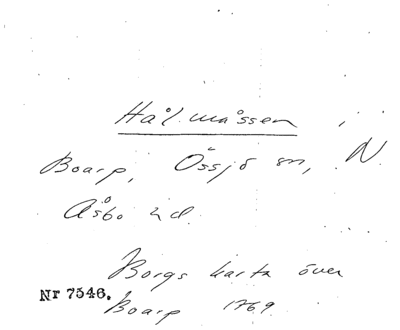 Hålmåssen,
Boarp, Össjö sn, N.
Åsbo hd.
Borgs karta över
Nr 7546.
Boarp 1769.